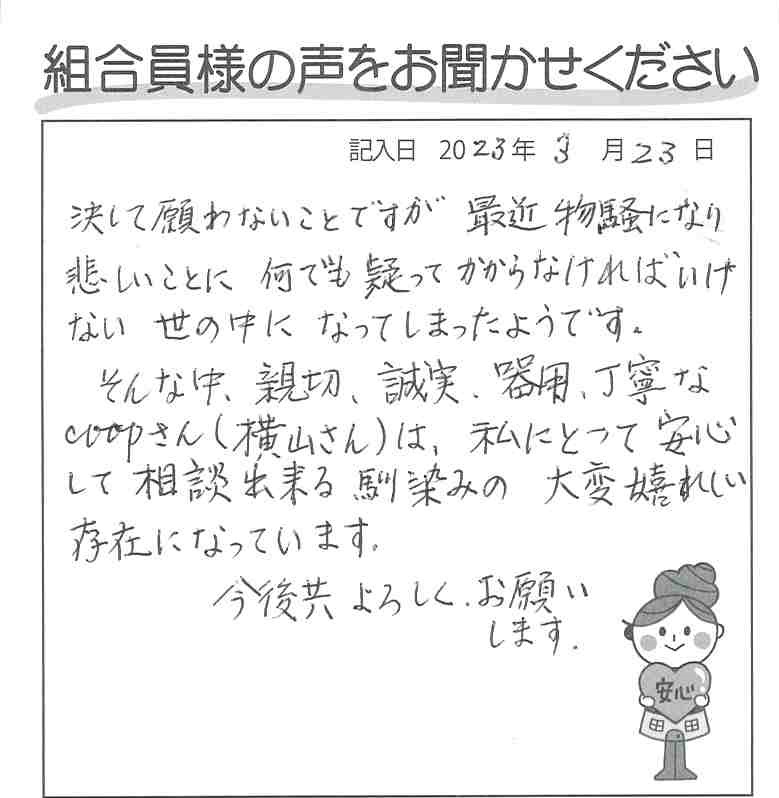 組合員様の声をお聞かせください
記入日 2023年 3 月 23 日
決して願わないことですが 最近 物騒になり
悲しいことに 何でも疑って かからなければいけ
ない 世の中に なってしまったようです。
そんな中、親切、誠実、器用、丁寧な
coopさん(横山さん)は、私にとって 安心
して 相談出来る 馴染みの 大変嬉れしい
存在になっています。
今後共 よろしく、お願い
します.
安心